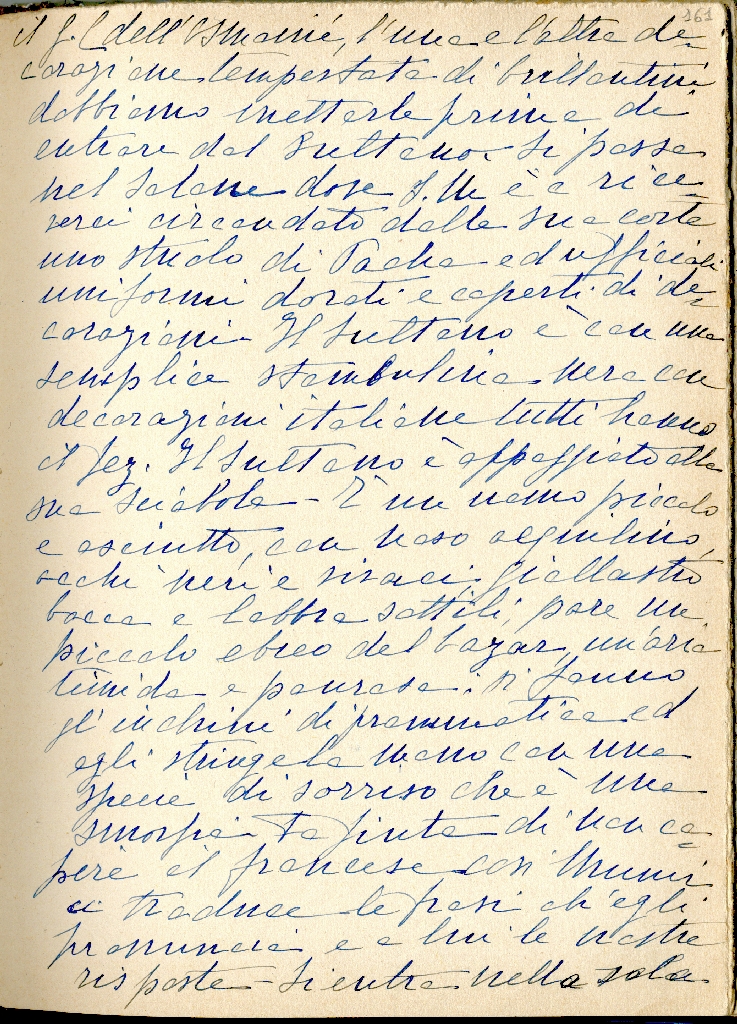 161
il g. C dell'Osmanié, l'una e l'altra de=
corazione tempestata di brillantini
dobbiamo metterle prima di
entrare dal Sultano. Si passa
nel salone dove S. M. è a rice=
verci circondato dalla sua corte
uno stuolo di Pacha ed ufficiali
uniformi dorati e coperti di de=
corazioni. Il Sultano è con una
semplice stambulina nera con
decorazioni italiane tutti hanno
il fez. Il Sultano è appoggiato alla
sua sciabola – È un uomo piccolo
e asciutto, con naso aquilino,
occhi neri e vivaci, giallastro
bocca e labbra sottili, pare un
piccolo ebreo del bazar, un'aria
timida e paurosa; si fanno
gl'inchini di prammatica ed
egli stringe la mano con una
specie di sorriso che è una
smorfia. Fa finta di non ca=
pire il francese così Munir
ci traduce le frasi ch'egli
pronuncia e a lui le nostre
risposte – Si entra nella sala